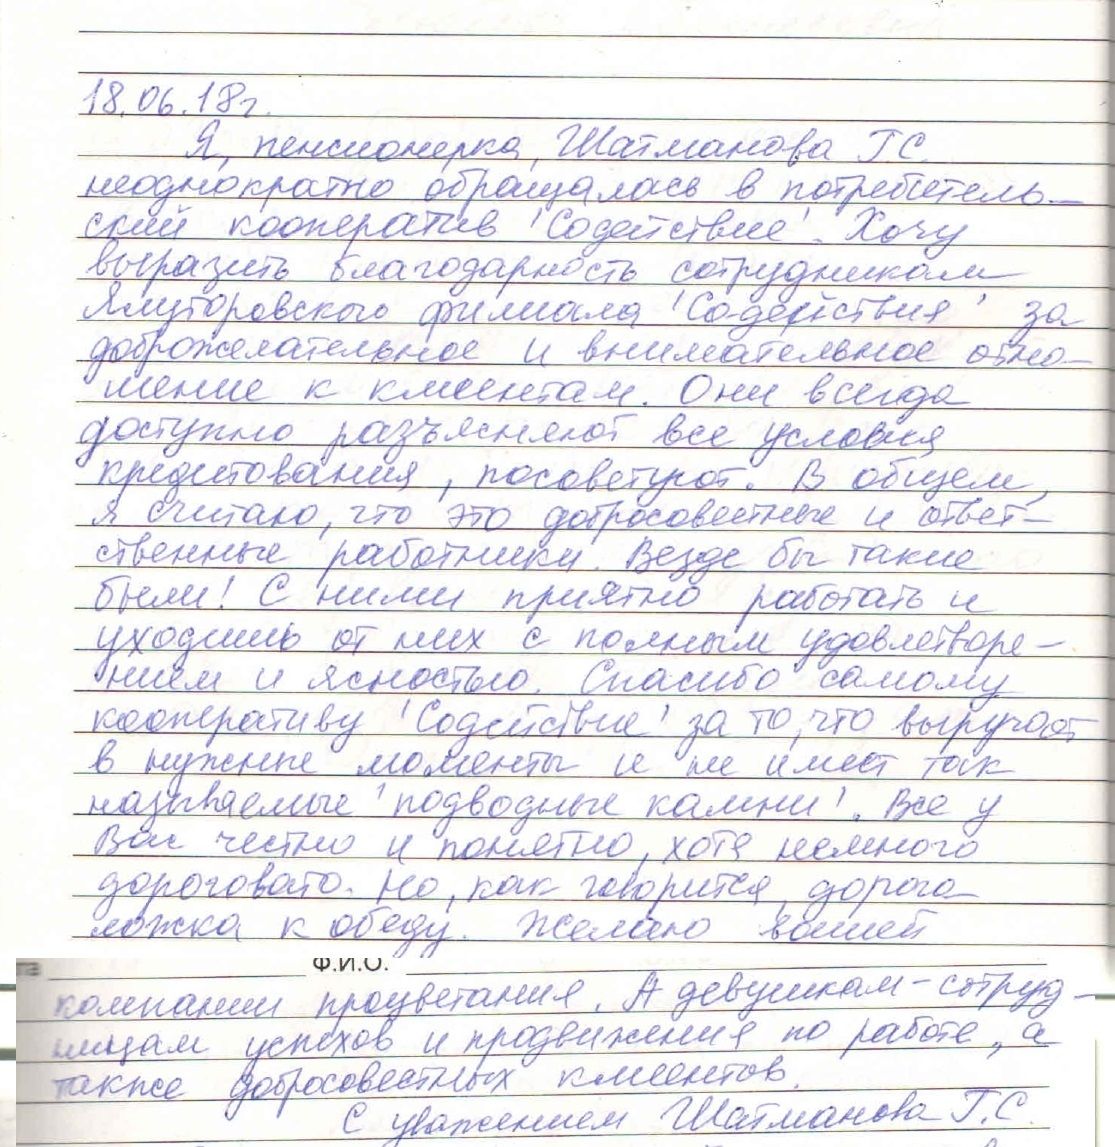 18.06.18г.
Я, пенсионерка, Шатманова Г.С.
неоднократно обращалась в потребитель-
ский кооператив "Содействие". Хочу
выразить благодарность сотрудникам
Ялуторовского филиала "Содействия" за
доброжелательное и внимательное отно-
шение к клиентам. Они всегда
доступно разъясняют все условия
кредитования, посоветуют. В общем,
я считаю, что это добросовестные и ответ-
ственные работники. Везде бы такие
были! С ними приятно работать и
уходишь от них с полным удовлетворе-
нием и ясностью. Спасибо самому
кооперативу "Содействие" за то, что выручает
в нужные моменты и не имеет так
называемые "подводные камни". Все у
Вас честно и понятно, хотя немного
дороговато. Но, как говорится, дорога
ложка к обеду. Желаю вашей
та Ф.И.О.
компании процветания. А девушкам-сотруд-
ницам успехов и продвижения по работе, а
также добросовестных клиентов.
С уважением Шатманова Г.С.